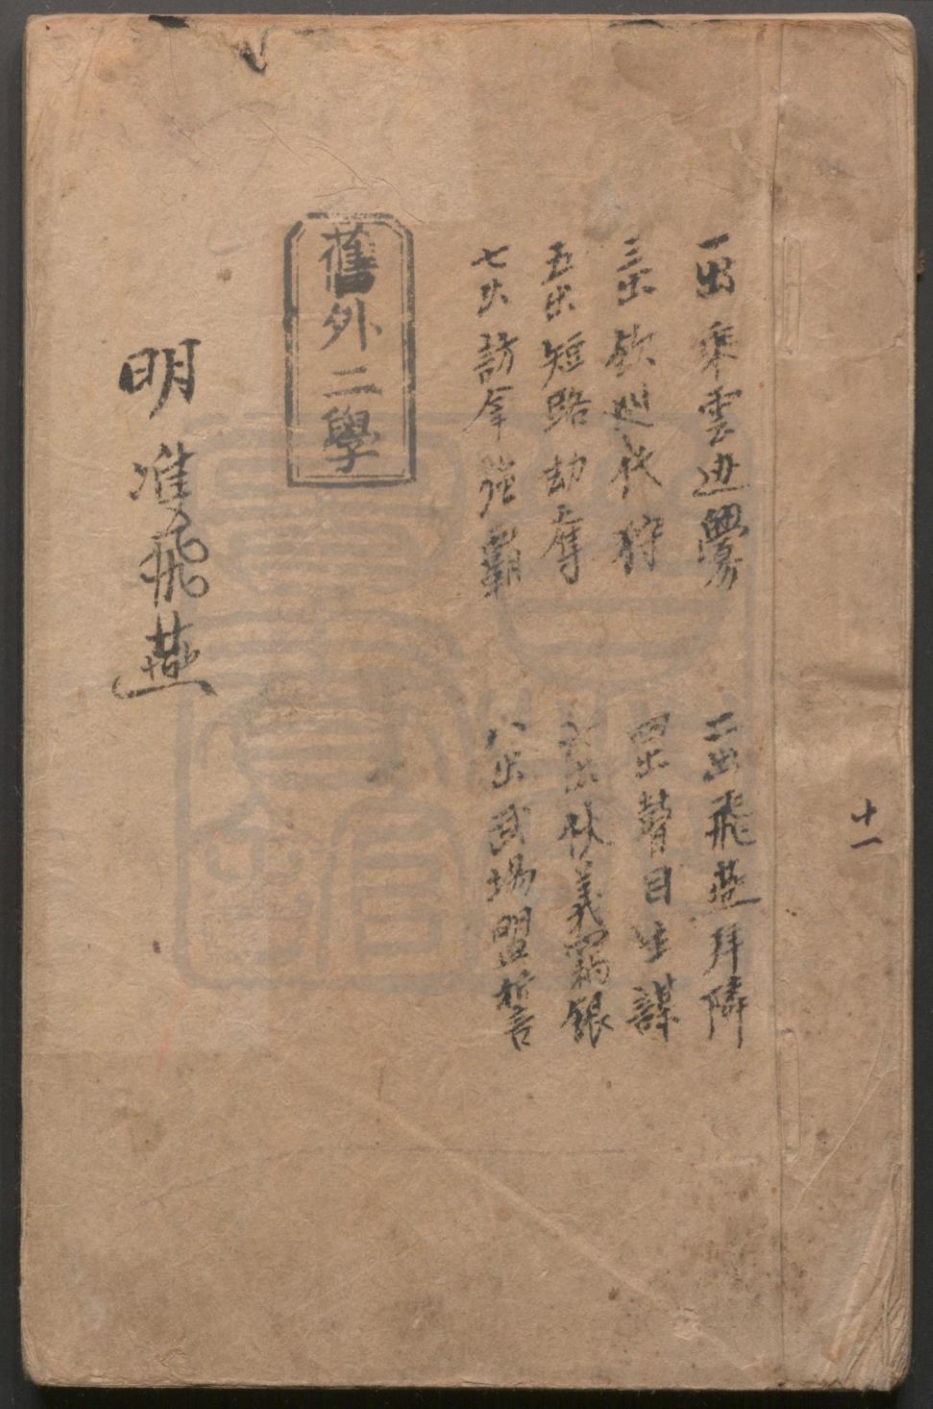 一出乘雲迎釁
二出飛燕拜隣
三出欽巡代狩
四出瞽目生謀
五出短路劫奪
六出伏義竊銀
七出訪拿強霸
八出武場盟誓
舊外二學
明 准飛燕
十一